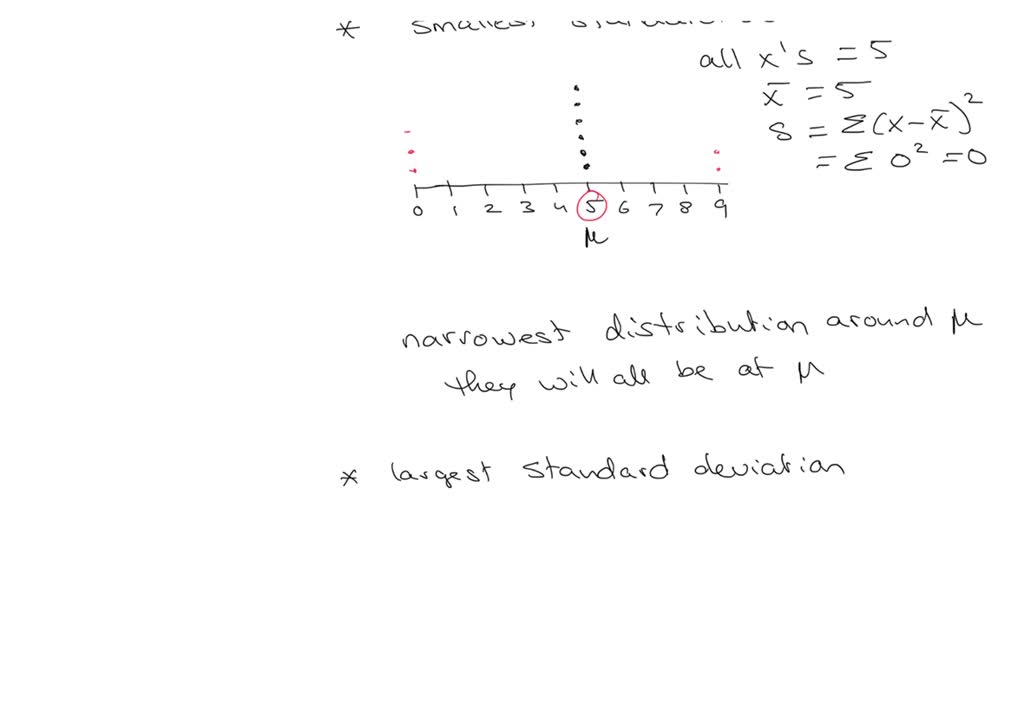 *
all x's = 5
x̄ = 5
s = Σ(x-x̄)²
= Σ 0² = 0
0 1 2 3 4 5 6 7 8 9
μ
narrowest distribution around μ
they will all be at μ
* largest standard deviation